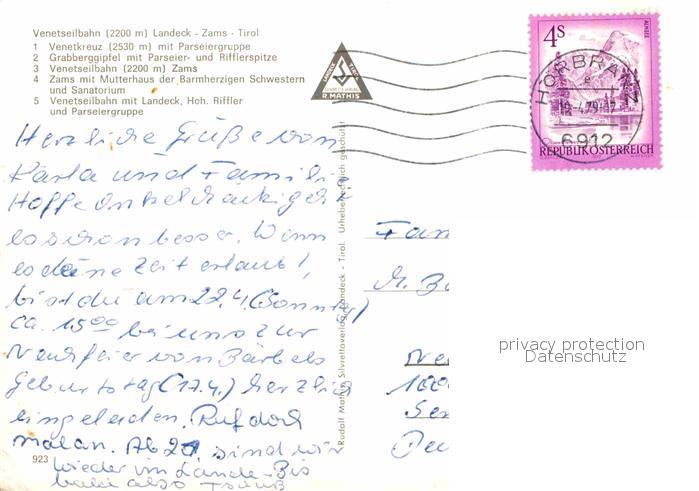 Venetseilbahn (2200 m) Landeck - Zams - Tirol
1 Venetkreuz (2530 m) mit Parseiergruppe
2 Grabberggipfel mit Parseier- und Rifflerspitze
3 Venetseilbahn (2200 m) Zams
4 Zams mit Mutterhaus der Barmherzigen Schwestern
und Sanatorium
5 Venetseilbahn mit Landeck, Hoh. Riffler
und Parseiergruppe
R. MATHIS
4S
ALMSEE
HÖRBRANZ
6912
REPUBLIK ÖSTERREICH
Herzliche Grüße von
Karla und Famili
Hoffe Onkel
es schon besser. Wenn
es deine Zeit erlaubt,
bist du am 22.4. (Sonntag)
ca. 15⁰⁰ bei uns zur
Nachfeier von Bärbels
Geburtstag (17.4.) herzlich
eingeladen. Ruf doch
mal an. Ab 20. sind wir
wieder im Lande - Bis
bald also Tschüß
923
Rudolf Mathis, Silvrettaverlag, Landeck - Tirol. Urheberrechtlich geschützt
Fam
privacy protection
Datenschutz